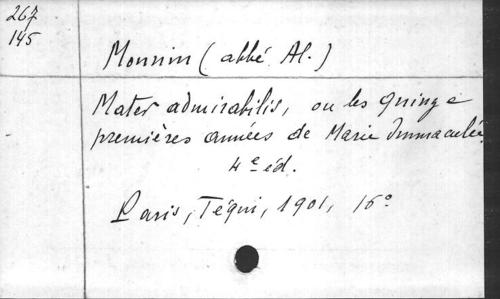 267
145
Monnin (abbé Al.)
Mater admirabilis, ou les quinze
premières années de Marie Immaculée
4e éd.
Paris, Téqui, 1901, 16°